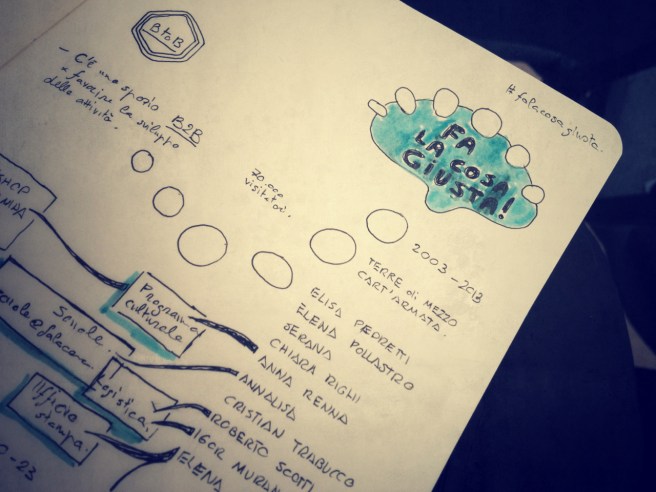 BtoB
- C'è uno spazio B2B
a favorire la sviluppo
delle attività.
#falacosagiusta.
FA
LA COSA
GIUSTA!
70.000
visitatori.
2003-2013
TERRE di MEZZO
CART'ARMATA.
ELISA PEDRETTI
ELENA POLLASTRO
SERANA
CHIARA RIGHI
ANNA RENNA
ANNALISA
CRISTIAN TRABUCCO
ROBERTO SCOTTI
IGOR
ELENA
Programma
culturale
Scuole.
Logistica.
Ufficio
stampa.
0-23